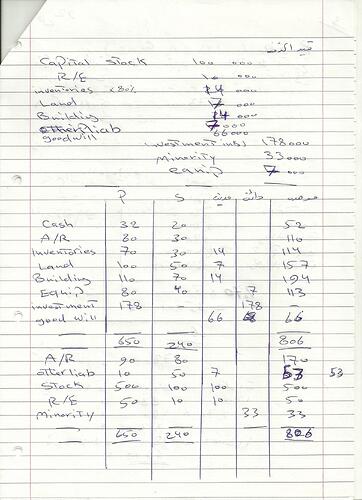 قيد الحذف
Capital stock 100 000
R/E 10 000
inventories x 80% 14 000
Land 7 000
Building 14 000
other liab 7000
goodwill 66000
investment in(s) 178000
Minority 33000
equip 7000
P S مدين دائن
Cash 32 20 52
A/R 80 30 110
inventories 70 30 14 114
Land 100 50 7 157
Building 110 70 14 194
Equip 80 40 7 113
investment 178 - 178
good will 66 66
650 240 806
A/R 90 80 170
other liab 10 50 7 53 53
Stock 500 100 100 500
R/E 50 10 10 50
Minority 33 33
650 240 806